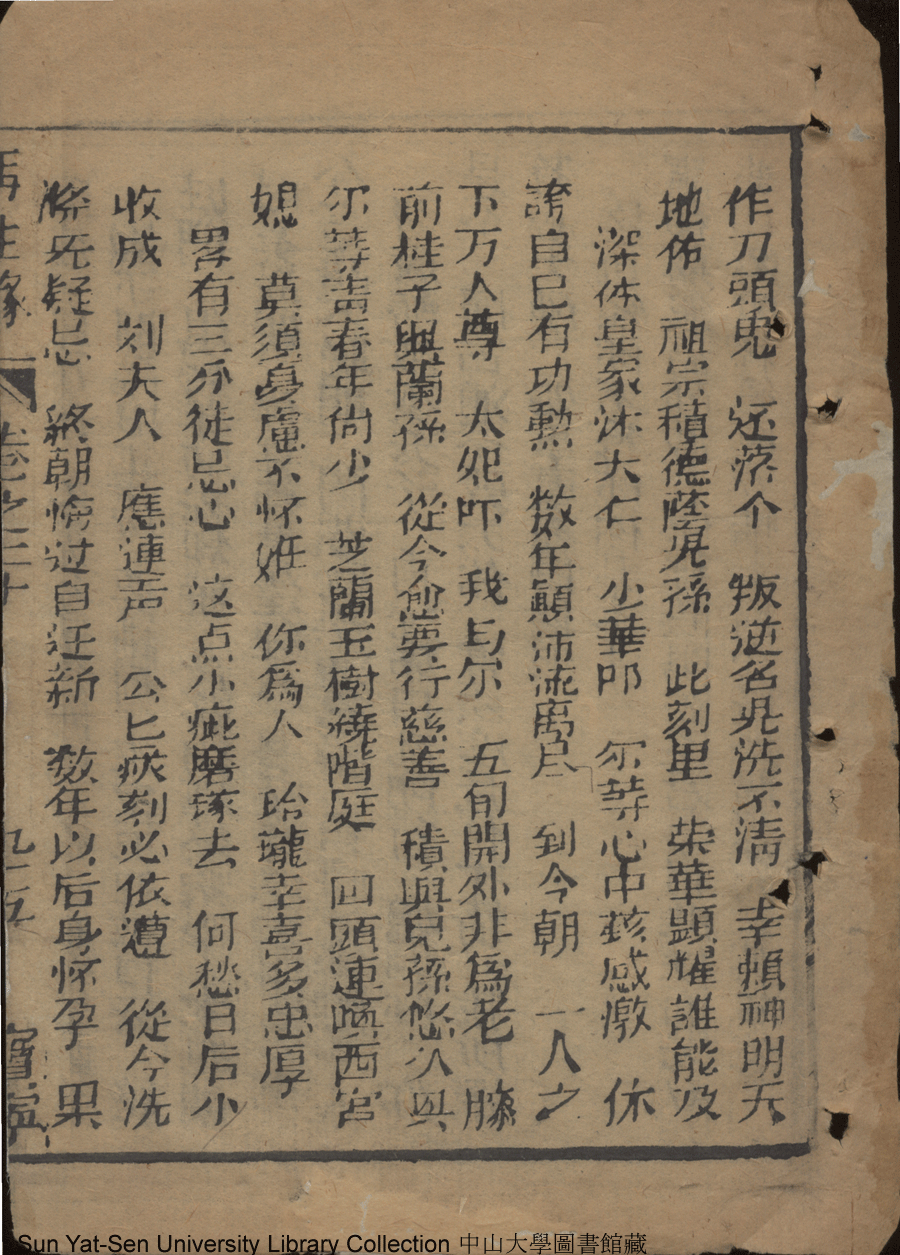 作刀頭鬼　还落个　叛逆名兒洗不清　幸賴神明天
地佑　祖宗積德蔭兒孫　此刻里　荣華顕耀誰能及
深体皇家沐大仁　少華叩　尔等心中核感憿　休
誇自己有功勲　数年顛沛流离尽　到今朝　一人之
下万人尊　太妃吓　我与尔　五旬開外非爲老　膝
前桂子與蘭孫　從今愈要行慈善　積與兒孫悠久與
尔等青春年尚少　芝蘭玉樹繞階庭　回頭連喚西宮
媳　莫須身慮不怀妊　你爲人　玲瓏幸喜多忠厚
畧有三分徒忌心　这点小疵磨琢去　何愁日后小
收成　刘夫人　應連声　公匕疾刻必依遵　從今洗
滌旡疑忌　終朝悔过自迁新　数年以后身怀孕　果
再生緣　卷之二十　九十五　寳寕
Sun Yat-Sen University Library Collection 中山大學圖書館藏